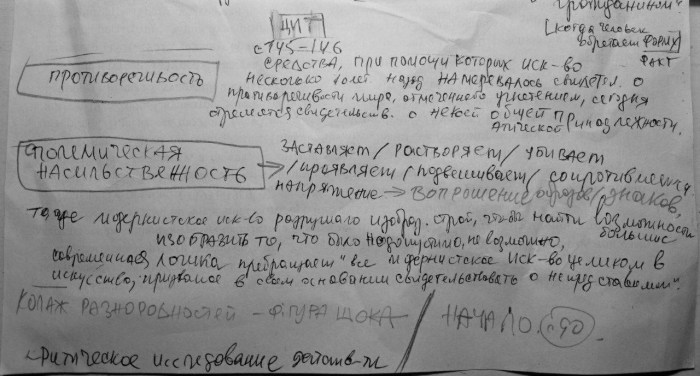 гражданином"
ЦИТ
[когда человек
обретает форму]
с 145-146
ФАКТ
средства, при помощи которых иск-во
ПРОТИВОРЕЧИВОСТЬ
несколько лет назад намеревалось свидетел. о
противоречивости мира, отмеченного угнетением, сегодня
стремятся свидетельств. о некоей общей принадлежности.
этической
ПОЛЕМИЧЕСКАЯ
НАСИЛЬСТВЕННОСТЬ
ЗАСТАВЛЯЕТ / РАСТВОРЯЕТ / УБИВАЕТ
/ проявляет / подвешивает / сопротивление
напряжение → ВОПРОШЕНИЕ образов / знаков,
модернистское иск-во разрушало изобраз. строй, чтобы найти возможности
большие
изобразить то, что было недопустимо, невозможно,
современная логика превращает "все модернистское иск-во целиком в
искусство, призванное в своем основании свидетельствовать о непредставимом".
КОЛАЖ РАЗНОРОДНОСТЕЙ - ФИГУРА ШОКА / НАЧАЛО с90
критическое исследование действ-ти